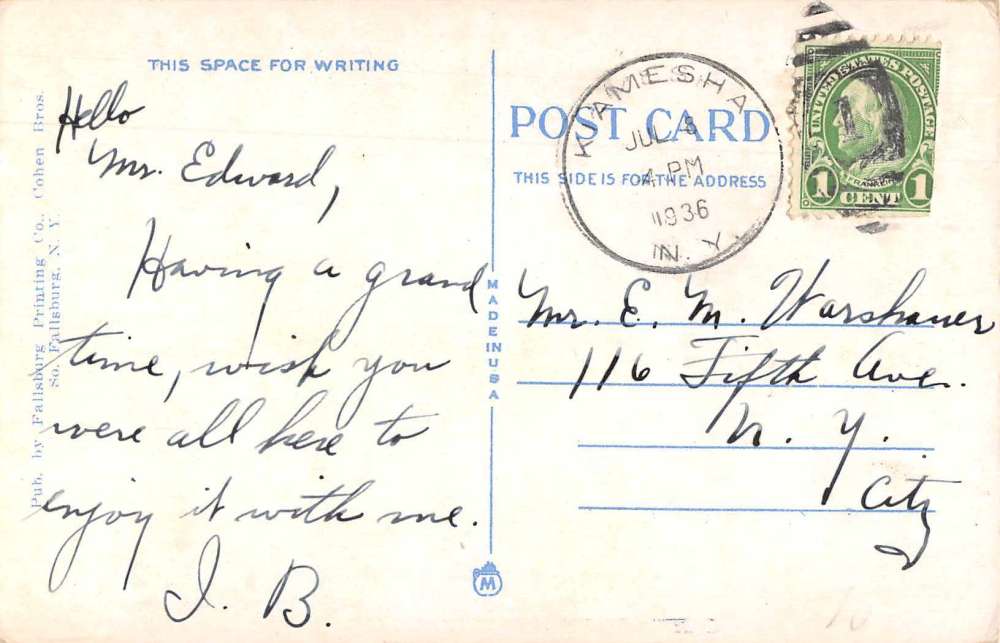 THIS SPACE FOR WRITING
Hello
Mr. Edward,
Having a grand
time, wish you
were all here to
enjoy it with me.
I. B.
Pub. by Fallsburg Printing Co., Cohen Bros.
So. Fallsburg, N. Y.
MADE IN USA
M
POST CARD
THIS SIDE IS FOR THE ADDRESS
KIAMESHA
JUL 8
4-PM
1936
N. Y.
UNITED STATES POSTAGE
1
FRANKLIN
1 CENT 1
Mr. E. M. Warshauer
116 Fifth Ave.
N. Y.
City